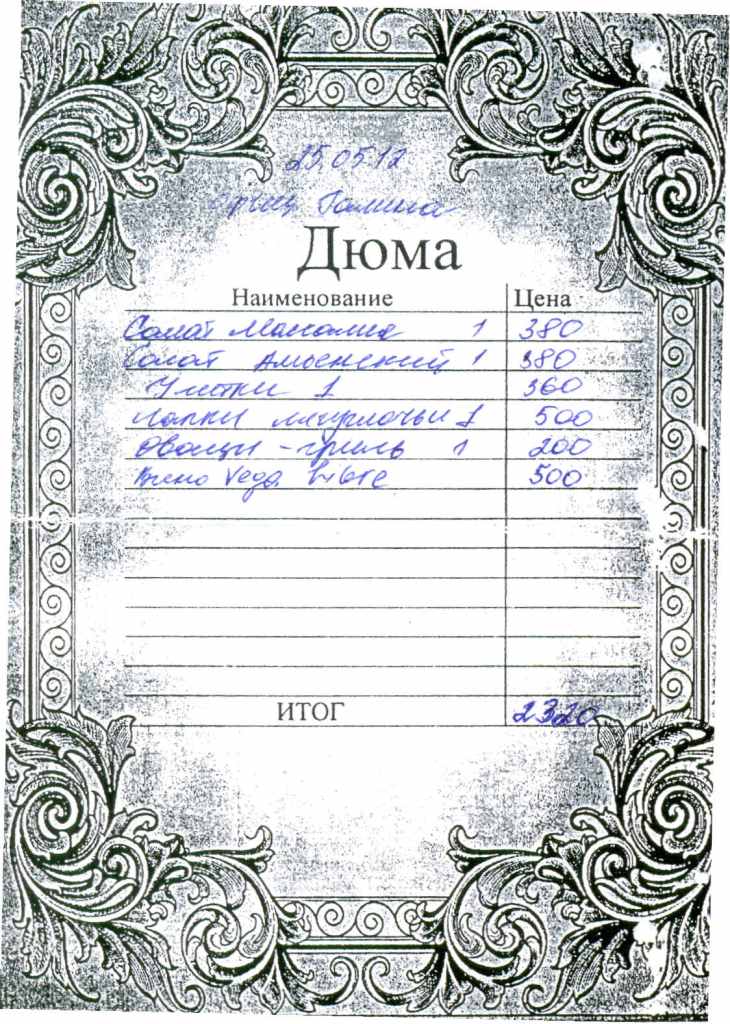 25.05.12
Официант Галина
Дюма
Наименование Цена
Салат 1 380
Салат Амьенский 1 380
Улитки 1 360
Лапки лягушачьи 1 500
Овощи-гриль 1 200
Вино Vega Libre 500
ИТОГ 2320